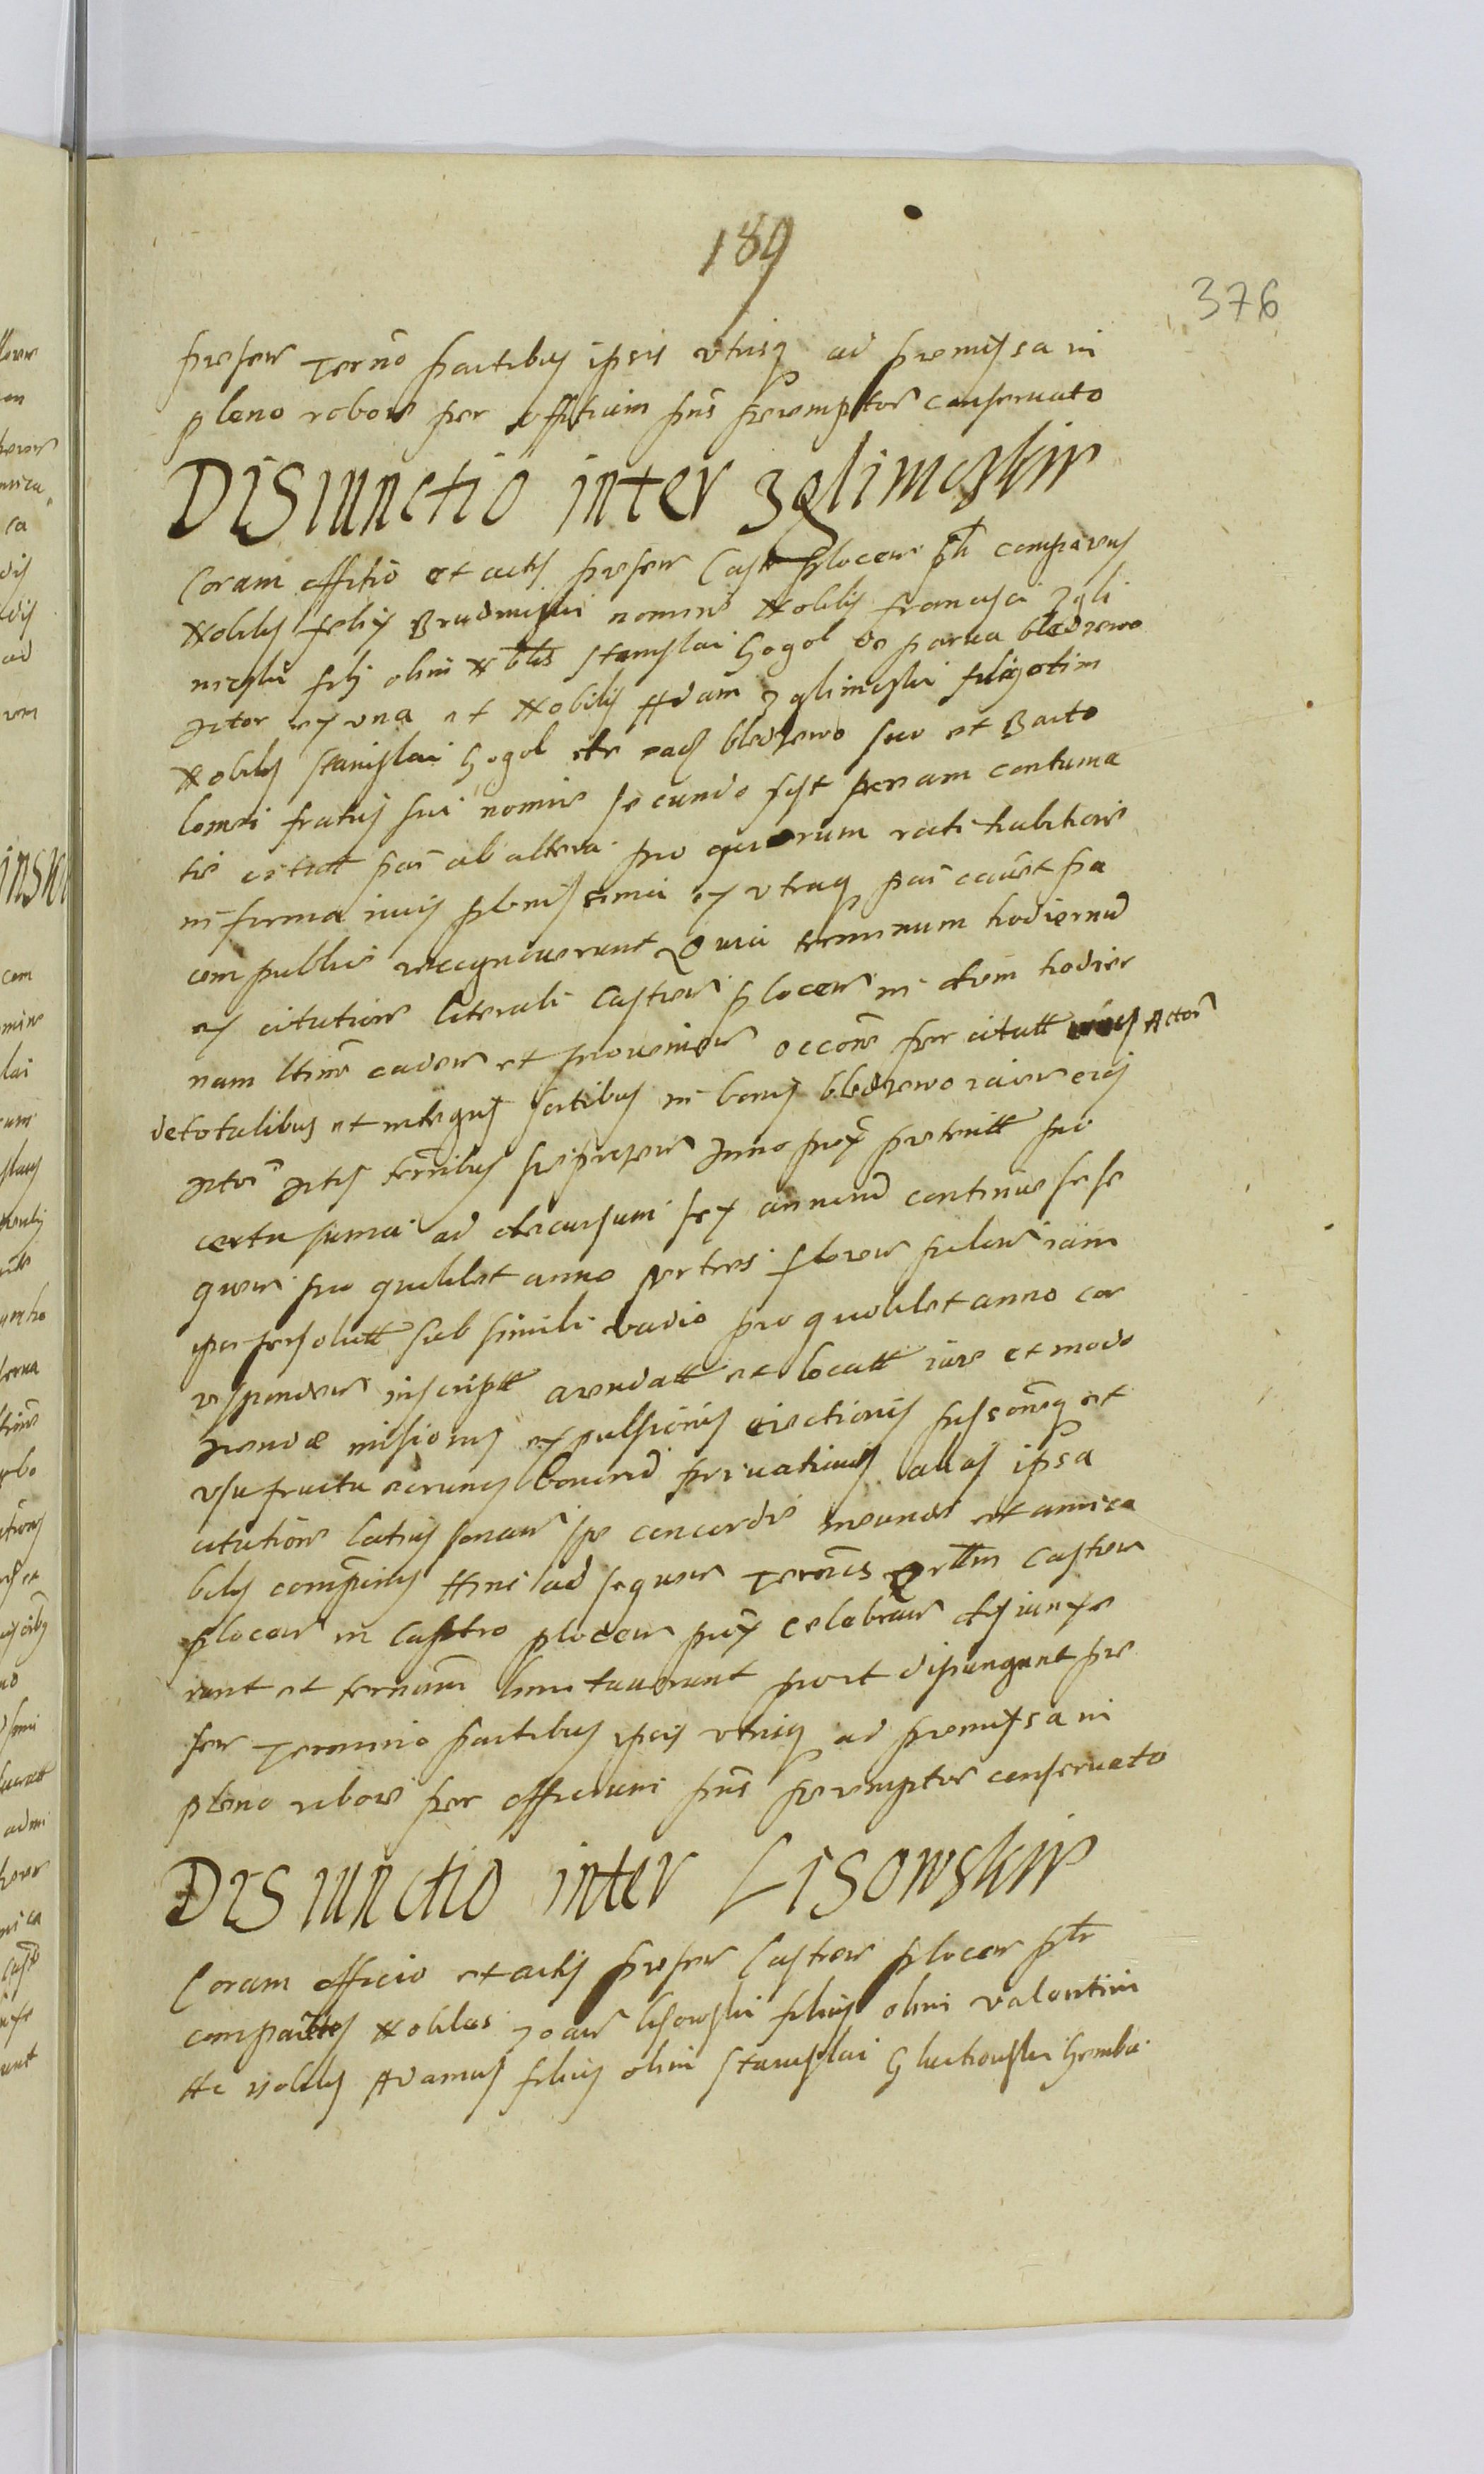 189
376
presen Termo partibus ipsis utrisq ad premissa in
pleno robore per officium pns peremptor conservato
Disiunctio inter Zglimoskie
Coram officio et actis presen Castr plocen plr comparens
Nobilis felix Brudniski nomine Nobilis francisci Zgli
niczki filii olim Nobilis Stanislai Gogol de parva bledzewo
Actor ex una et Nobilis Adam Zglimoski filius olim
Nobilis Stanislai Gogol de ead bledzewo suo et Barto
lomei fratris sui nomine secundo sub penam contuma
tie citatt par ab altera pro quorum rati habitione
in forma iuris plenissima ex utraq par
com publice recognoverunt Quia terminum hodiernu
ex citatione literali Castren plocen in diem hodier
nam caden et provenien occone per citatt Actor
de totalibus et integris sortibus in bonis bledzewo iacen
Actor Actis terribus Anno prox preteritt pro
certa suma ad decursum sex annoru continue sese
quen pro quolibet anno per tres floren
persolutt sub simili vadio pro quolibet anno cor
responden inscriptt arendatt et locatt iure et modo
Arendae misionis expulsionis eiectionis et
usufructu eorund bonoru privationis alias ipsa
citatione latius sonan spe concordie ineunde et amica
bilis ad sequen Termis Castren
plocen in Castro plocen prox celebran disiunxe
runt et limitaverunt prout disiungunt pre
sen Termino partibus ipsis utrisq ad premissa in
pleno robore per officium pns peremptor conservato
Disiunctio inter Lisowskie
Coram officio et actis presen Castren plocen plr
comparentes Nobiles Joan lisowski filius olim valentini
Ac Nobilis Adamus filius olim Stanislai Gluchowski Gemba